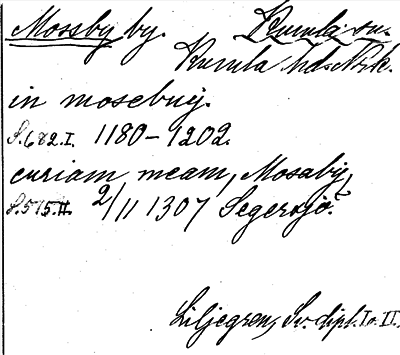 Mossby by. Kumla sn.
Kumla hds Nrk.
in mosebuy.
S. 682. I. 1180-1202.
curiam meam, Mosaby,
S. 515. II. 2/11 1307 Segersjö.
Liljegren, Sv. dipl. I o. II.